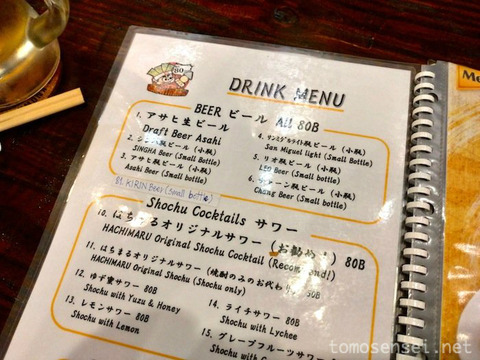 DRINK MENU
BEER ビール All 80B
1. アサヒ生ビール
Draft Beer Asahi
2. シンハ瓶ビール (小瓶)
SINGHA Beer (Small Bottle)
3. アサヒ瓶ビール (小瓶)
Asahi Beer (Small bottle)
4. サンミゲルライト瓶ビール (小瓶)
San Miguel light (Small Bottle)
5. リオ瓶ビール (小瓶)
Leo Beer (Small bottle)
6. チャーン瓶ビール (小瓶)
Chang Beer (Small bottle)
81. KIRIN Beer (Small bottle)
Shochu Cocktails サワー
10. はちまるオリジナルサワー (お勧め!) 80B
HACHIMARU Original Shochu Cocktail (Recom end!)
11. はちまるオリジナルサワー (焼酎のみのお代わり 80B
HACHIMARU Original Shochu (Shochu only)
12. ゆず蜜サワー 80B
Shochu with Yuzu & Honey
13. レモンサワー 80B
Shochu with Lemon
14. ライチサワー 80B
Shochu with Lychee
15. グレープフルーツサワー
Shochu with
Me
tomosensei.net